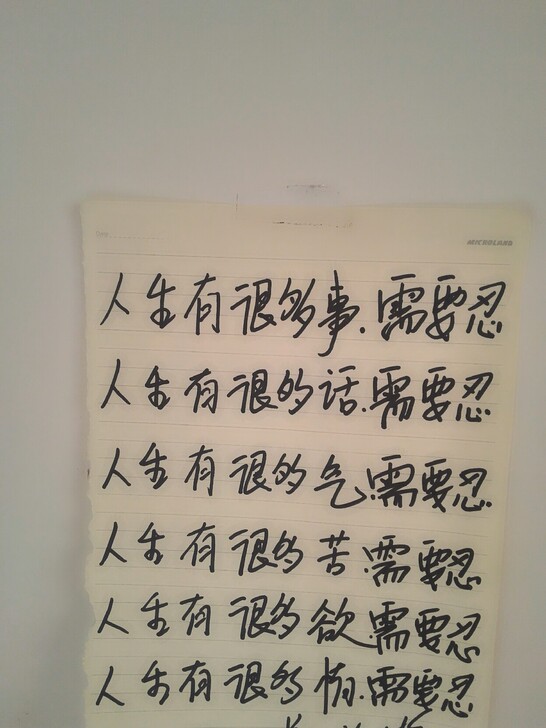 MICROLAND
人生有很多事.需要忍
人生有很多话.需要忍
人生有很多气.需要忍
人生有很多苦.需要忍
人生有很多欲.需要忍
人生有很多情.需要忍